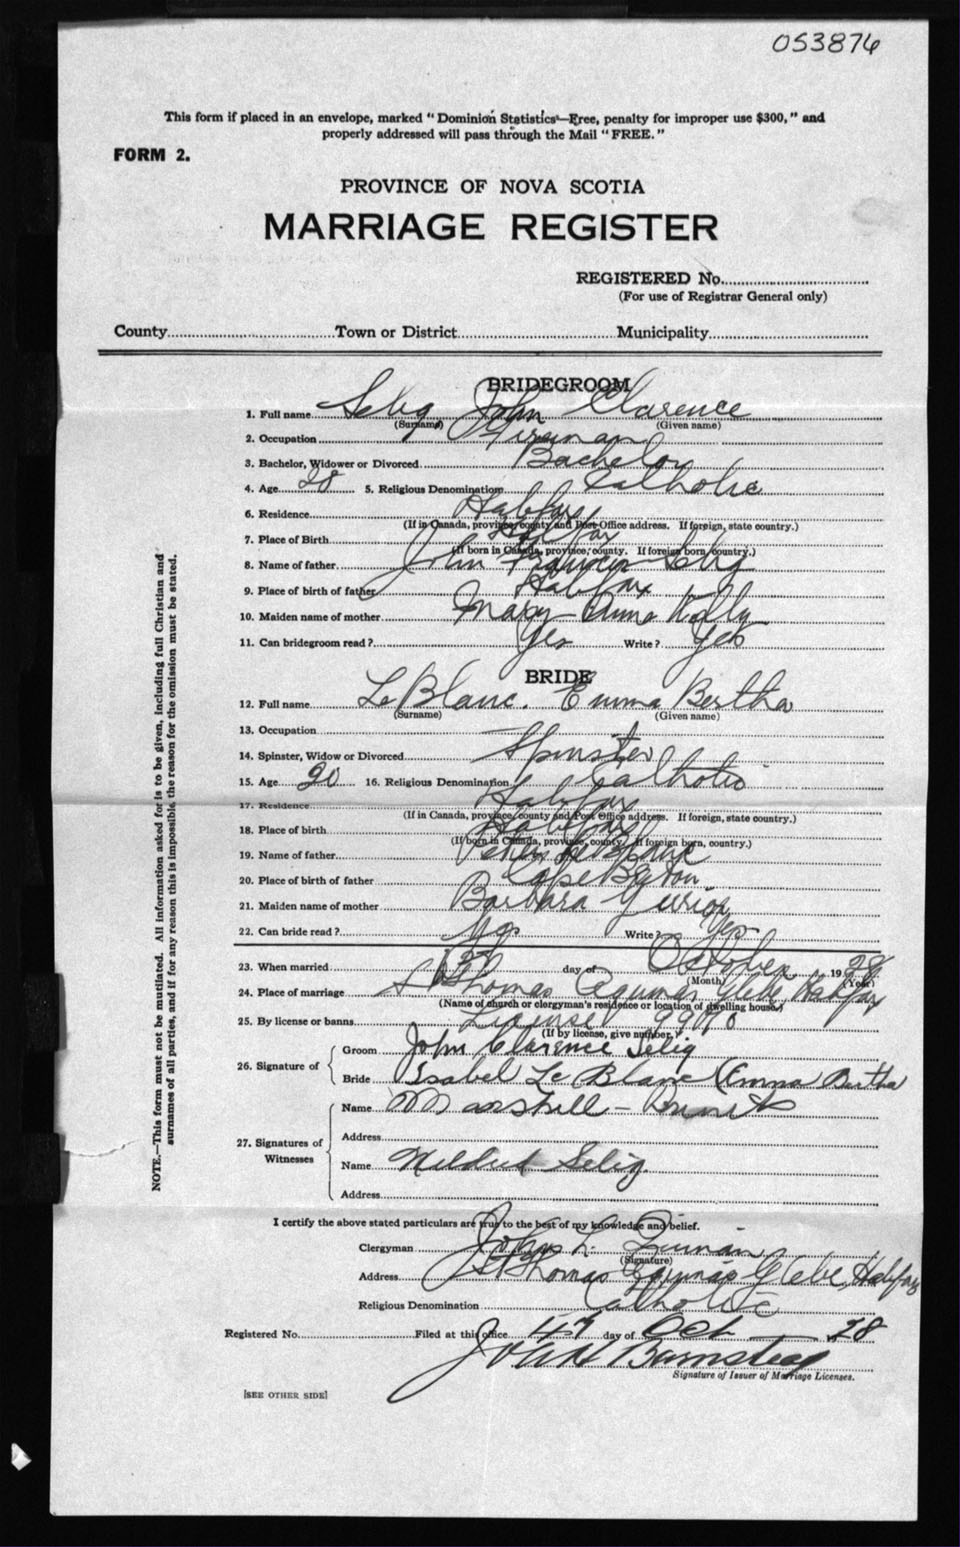 053876
This form if placed in an envelope, marked "Dominion Statistics—Free, penalty for improper use $300," and
properly addressed will pass through the Mail "FREE."
FORM 2.
PROVINCE OF NOVA SCOTIA
MARRIAGE REGISTER
REGISTERED No.
(For use of Registrar General only)
County Town or District Municipality
BRIDEGROOM
1. Full name Selig John Clarence
(Surname) (Given name)
2. Occupation Fireman
3. Bachelor, Widower or Divorced Bachelor
4. Age 28 5. Religious Denomination Catholic
6. Residence Halifax
(If in Canada, province, county and Post Office address. If foreign, state country.)
7. Place of Birth Halifax
(If born in Canada, province, county. If foreign born, country.)
8. Name of father John Francis Selig
9. Place of birth of father Halifax
10. Maiden name of mother Mary Anna Kelly
11. Can bridegroom read? Yes Write? Yes
BRIDE
12. Full name LeBlanc. Emma Bertha
(Surname) (Given name)
13. Occupation
14. Spinster, Widow or Divorced Spinster
15. Age 20 16. Religious Denomination Catholic
17. Residence Halifax
(If in Canada, province, county and Post Office address. If foreign, state country.)
18. Place of birth Halifax
(If born in Canada, province, county. If foreign born, country.)
19. Name of father LeBlanc
20. Place of birth of father Cape Breton
21. Maiden name of mother Barbara
22. Can bride read? Yes Write? Yes
23. When married day of October 1928
(Month) (Year)
24. Place of marriage St Thomas Aquinas Glebe Halifax
(Name of church or clergyman's residence or location of dwelling house.)
25. By license or banns License
(If by license, give number.)
26. Signature of Groom John Clarence Selig
Bride Isabel Le Blanc (Emma Bertha
27. Signatures of Witnesses Name Marshall
Address
Name Mildred Selig
Address
I certify the above stated particulars are true to the best of my knowledge and belief.
Clergyman John L. Quinan
(Signature)
Address St Thomas Aquinas Glebe, Halifax
Religious Denomination Catholic
Registered No. Filed at this office day of Oct 28
John Bumstead
Signature of Issuer of Marriage Licenses.
[SEE OTHER SIDE]
NOTE.—This form must not be mutilated. All information asked for is to be given, including full Christian and
surnames of all parties, and if for any reason this is impossible, the reason for the omission must be stated.